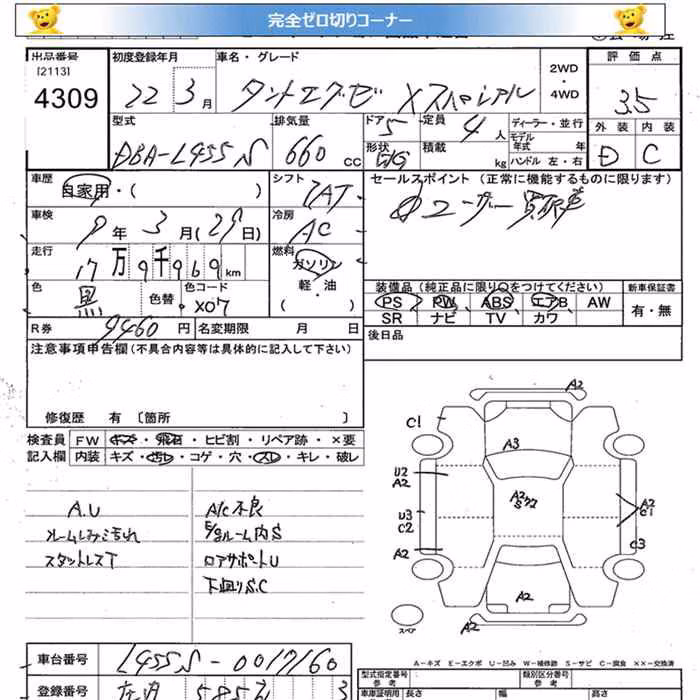 完全ゼロ切りコーナー
出品番号 初度登録年月 車名・グレード 2WD・4WD 評価点
[2113]
4309 22 3月 タントエグゼ Xスペシャル 3.5
型式 排気量 ドア 5 定員 4人 ディーラー・並行 外装 内装
DBA-L455S 660 cc 形状 積載 kg モデル年式 年 ハンドル 左・右 D C
車歴 自家用・( ) シフト 7AT セールスポイント (正常に機能するものに限ります)
車検 9年 3月(29日) 冷房 AC ユーザー買取車
走行 17万9千969km 燃料 ガソリン 軽・油 ( )
色 黒 色替 色コード X07 装備品(純正品に限り○をつけてください) 新車保証書
PS PW ABS エアB AW 有・無
SR ナビ TV カワ
R券 9460円 名変期限 月 日 後日品
注意事項申告欄(不具合内容等は具体的に記入して下さい)
修復歴 有 〔箇所 〕
検査員 FW キズ・飛石・ヒビ割・リペア跡・×要
記入欄 内装 キズ・汚レ・コゲ・穴・スレ・キレ・破レ
A.U
ルームしみ汚れ
スタットレスT
A/C不良
ルーム内S
ロアサポートU
下廻りS.C
A2
C1
A3
U2
A2
A2
U3
C2
A2
C1
A2
C3
A2
A2
スペア
A-キズ E-エクボ U-凹み W-補修跡 S-サビ C-腐食 ××-交換済
車台番号 L455S-0017160
型式指定番号 参考 類別区分番号 参考
登録番号 585 3
車庫証明用 長さ 幅 高さ